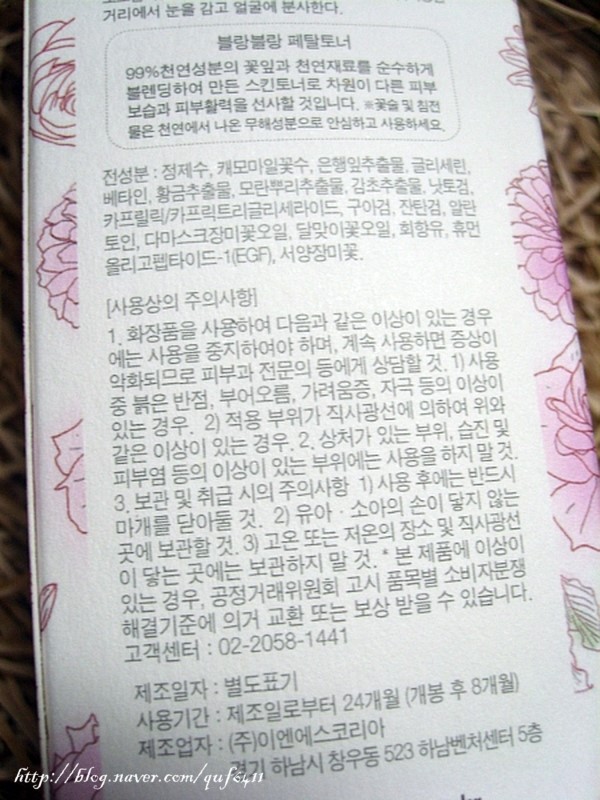 거리에서 눈을 감고 얼굴에 분사한다.
블랑블랑 페탈토너
99%천연성분의 꽃잎과 천연재료를 순수하게
블렌딩하여 만든 스킨토너로 차원이 다른 피부
보습과 피부활력을 선사할 것입니다. ※꽃술 및 침전
물은 천연에서 나온 무해성분으로 안심하고 사용하세요.
전성분 : 정제수, 캐모마일꽃수, 은행잎추출물, 글리세린,
베타인, 황금추출물, 모란뿌리추출물, 감초추출물, 낫토검,
카프릴릭/카프릭트리글리세라이드, 구아검, 잔탄검, 알란
토인, 다마스크장미꽃오일, 달맞이꽃오일, 회향유, 휴먼
올리고펩타이드-1(EGF), 서양장미꽃.
[사용상의 주의사항]
1. 화장품을 사용하여 다음과 같은 이상이 있는 경우
에는 사용을 중지하여야 하며, 계속 사용하면 증상이
악화되므로 피부과 전문의 등에게 상담할 것. 1) 사용
중 붉은 반점, 부어오름, 가려움증, 자극 등의 이상이
있는 경우. 2) 적용 부위가 직사광선에 의하여 위와
같은 이상이 있는 경우. 2. 상처가 있는 부위, 습진 및
피부염 등의 이상이 있는 부위에는 사용을 하지 말 것.
3. 보관 및 취급 시의 주의사항 1) 사용 후에는 반드시
마개를 닫아둘 것. 2) 유아 · 소아의 손이 닿지 않는
곳에 보관할 것. 3) 고온 또는 저온의 장소 및 직사광선
이 닿는 곳에는 보관하지 말 것. * 본 제품에 이상이
있는 경우, 공정거래위원회 고시 품목별 소비자분쟁
해결기준에 의거 교환 또는 보상 받을 수 있습니다.
고객센터 : 02-2058-1441
제조일자 : 별도표기
사용기간 : 제조일로부터 24개월 (개봉 후 8개월)
제조업자 : (주)이엔에스코리아
경기 하남시 창우동 523 하남벤처센터 5층
http://blog.naver.com/qufs411